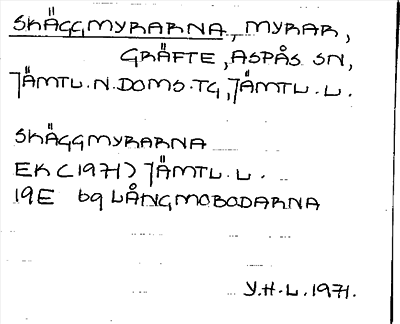 SKÄGGMYRARNA, MYRAR,
GRÄFTE, ASPÅS SN,
JÄMTL.N.DOMS.TG, JÄMTL.L.
SKÄGGMYRARNA
EK (1971) JÄMTL.L.
19E 6g LÅNGMOBODARNA
Y.H.L.1971.